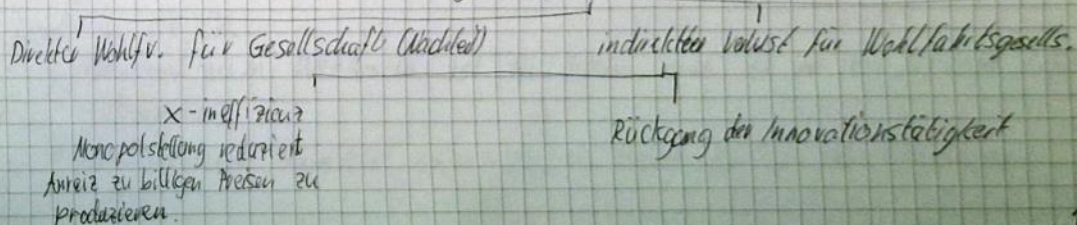 Direkter Wohlfv. für Gesellschaft (Nachteil) indirekter Verlust für Wohlfahrtsgesells.
X-ineffizienz
Monopolstellung reduziert
Anreiz zu billigen Preisen zu
produzieren.
Rückgang der Innovationstätigkeit